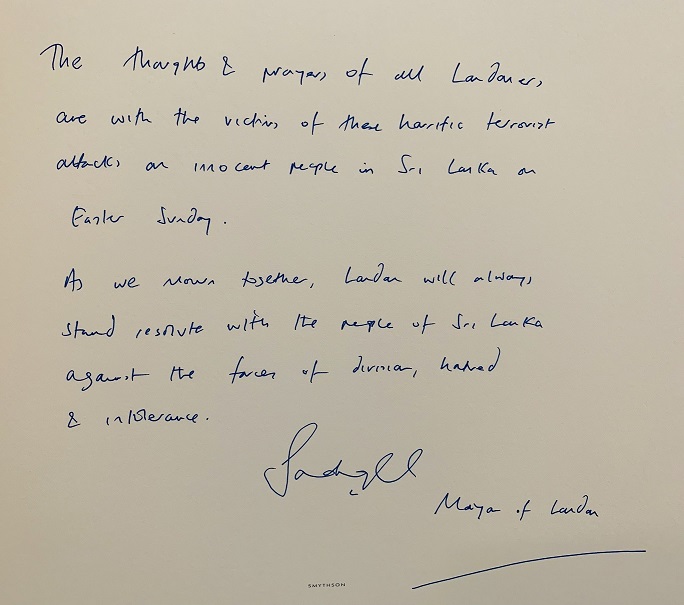 The thoughts & prayers of all Londoners,
are with the victims of these horrific terrorist
attacks on innocent people in Sri Lanka on
Easter Sunday.
As we mourn together, London will always
stand resolute with the people of Sri Lanka
against the forces of division, hatred
& intolerance.
Mayor of London
SMYTHSON